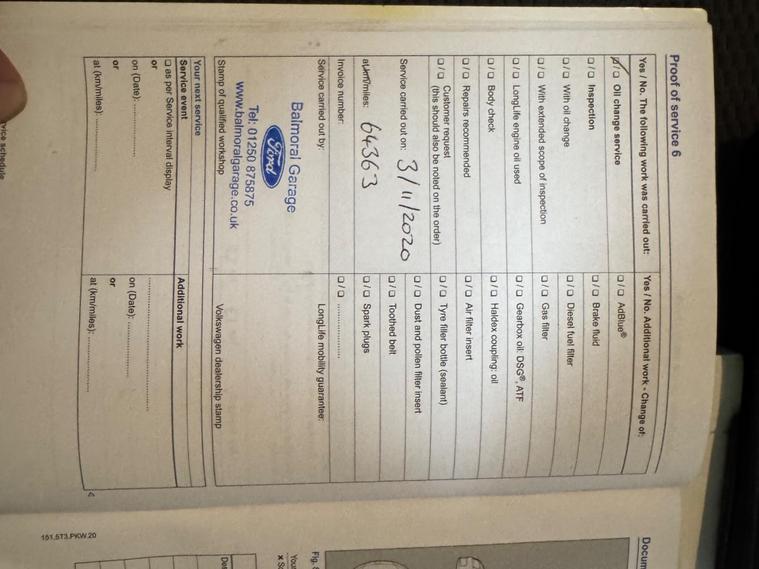 Proof of service 6
Yes / No. The following work was carried out:
☑/☐ Oil change service
☐/☐ Inspection
☐/☐ With oil change
☐/☐ With extended scope of inspection
☐/☐ LongLife engine oil used
☐/☐ Body check
☐/☐ Repairs recommended
☐/☐ Customer request
(this should also be noted on the order)
Service carried out on: 3/11/2020
at km/miles: 64363
Invoice number:
Service carried out by:
Balmoral Garage
Ford
Tel: 01250 875875
www.balmoralgarage.co.uk
Stamp of qualified workshop
Yes / No. Additional work - Change of:
☐/☐ AdBlue®
☐/☐ Brake fluid
☐/☐ Diesel fuel filter
☐/☐ Gas filter
☐/☐ Gearbox oil: DSG®, ATF
☐/☐ Haldex coupling: oil
☐/☐ Air filter insert
☐/☐ Tyre filler bottle (sealant)
☐/☐ Dust and pollen filter insert
☐/☐ Toothed belt
☐/☐ Spark plugs
☐/☐ ....................
LongLife mobility guarantee:
Volkswagen dealership stamp
Your next service
Service event
☐ as per Service interval display
or
on (Date): ................
or
at (km/miles): ................
Additional work
................................
on (Date): ................
or
at (km/miles): ................
151.5T3.PKW.20
Docum
Fig.
Your